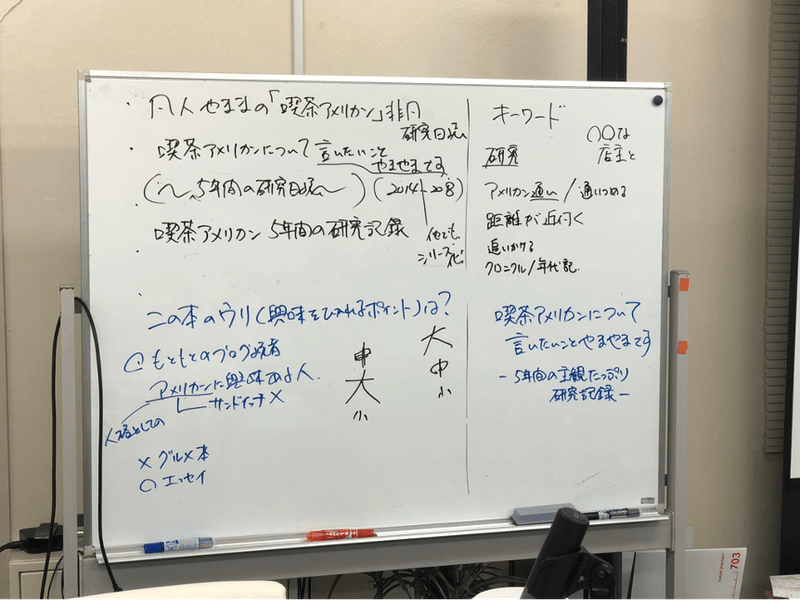 ・凡人やままの「喫茶アメリカン」非凡
研究日誌
・喫茶アメリカンについて言いたいこと
やまやまです
(〜5年間の研究日誌〜)(2014-2018)
喫茶アメリカン 5年間の研究記録
他でも
シリーズ
・
この本のウリ(興味をひかれるポイント)は?
○もともとのブログ読者
アメリカンに興味ある人
サンドイッチ×
人格としての
×グルメ本
○エッセイ
中
大
小
大
中
小
キーワード
○○な
店主と
研究
アメリカン通い/通いつめる
距離が近付く
追いかける
クロニクル/年代記
喫茶アメリカンについて
言いたいことやまやまです
-5年間の主観たっぷり
研究記録-
703